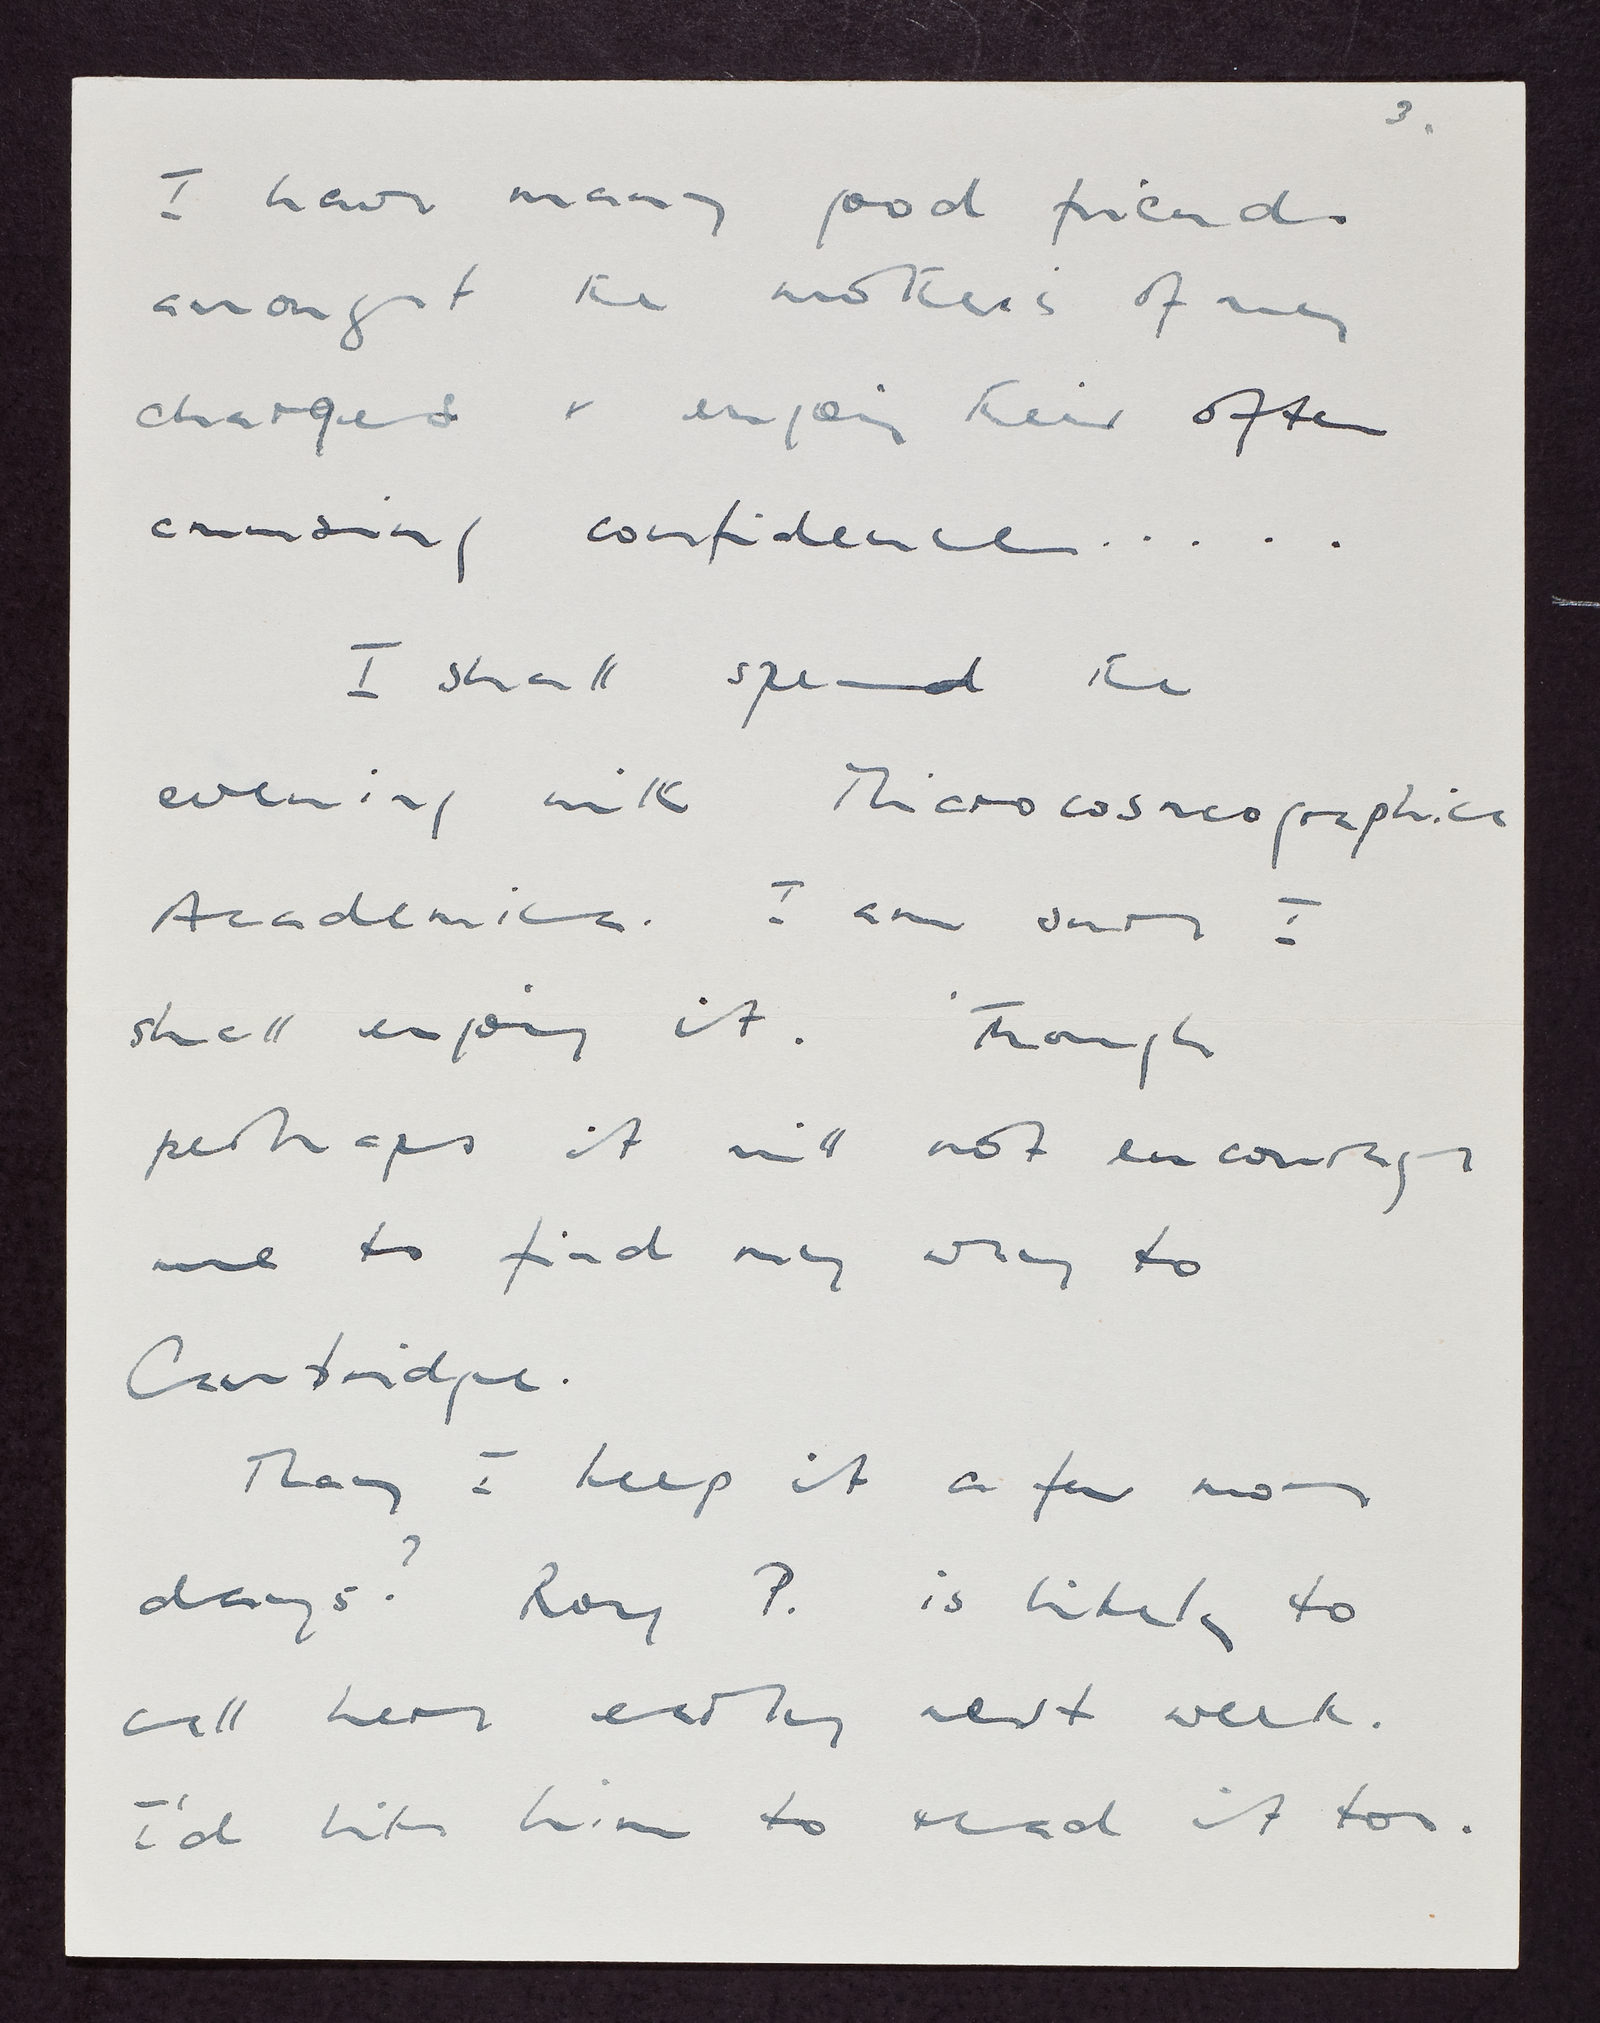 3.
I have many good friends
amongst the mothers of my
charges & enjoy their often
amusing confidences.....
I shall spend the
evening with Microcosmographica
Academica. I am sure I
shall enjoy it. Though
perhaps it will not encourage
me to find my way to
Cambridge.
May I keep it a few more
days? Rory P. is likely to
call here early next week.
I'd like him to read it too.